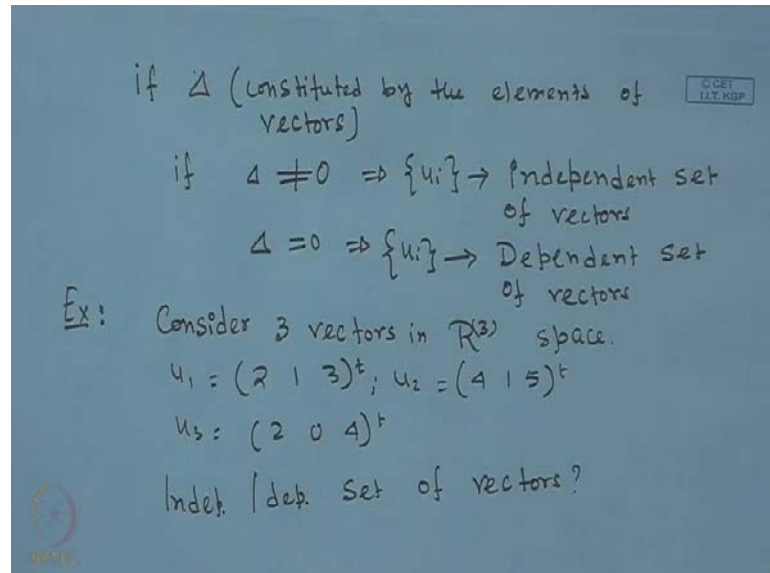 if Δ (constituted by the elements of
vectors)
© CET
I.I.T. KGP
if Δ ≠ 0 ⇒ {ui} → Independent set
of vectors
Δ = 0 ⇒ {ui} → Dependent set
of vectors
Ex: Consider 3 vectors in R(3) space.
u1 = (2 1 3)t; u2 = (4 1 5)t
u3 = (2 0 4)t
Indep. / dep. set of vectors?
NPTEL